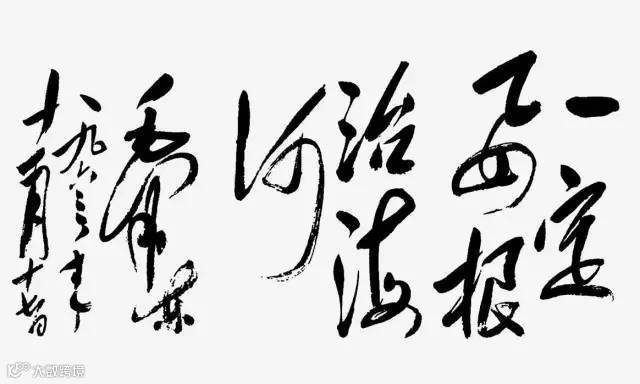 一定
要根
治海
河
毛泽东
一九六三年
十一月十七日
大数跨境